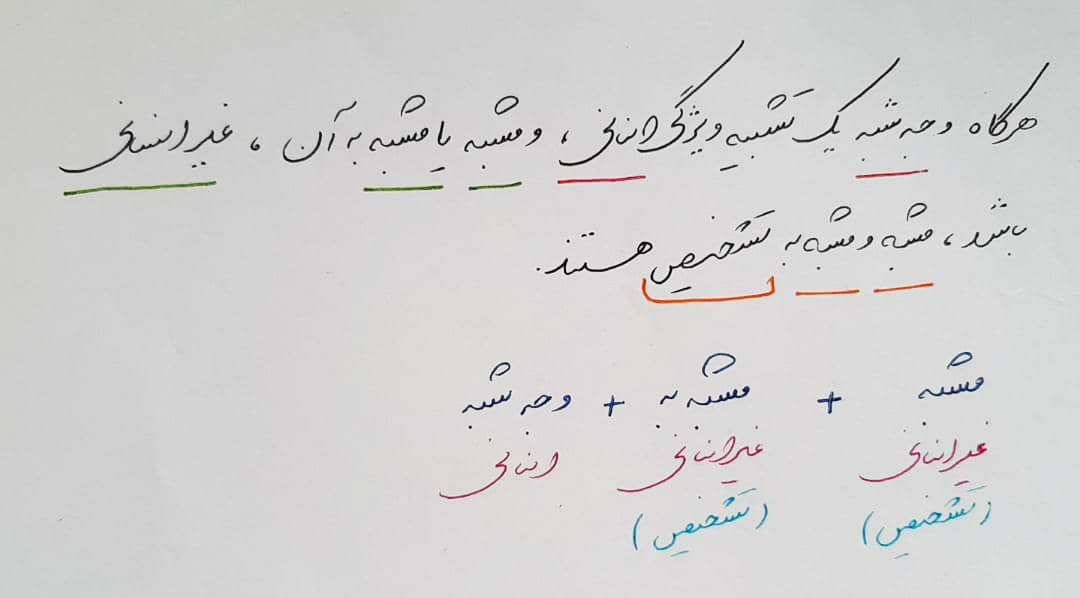 هرگاه وجه شبه یک تشبیه ویژگی انسانی، و مشبه یا مشبه به آن، غیر انسانی
باشد، مشبه و مشبه به تشخیص هستند.
مشبه + مشبه به + وجه شبه
غیرانسانی غیرانسانی انسانی
(تشخیص) (تشخیص)